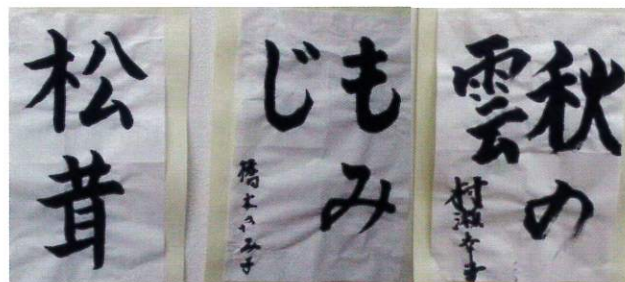 秋の
雲
村瀬幸子
もみ
じ
橋本きみ子
松茸